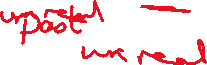 unreal
Past
unreal